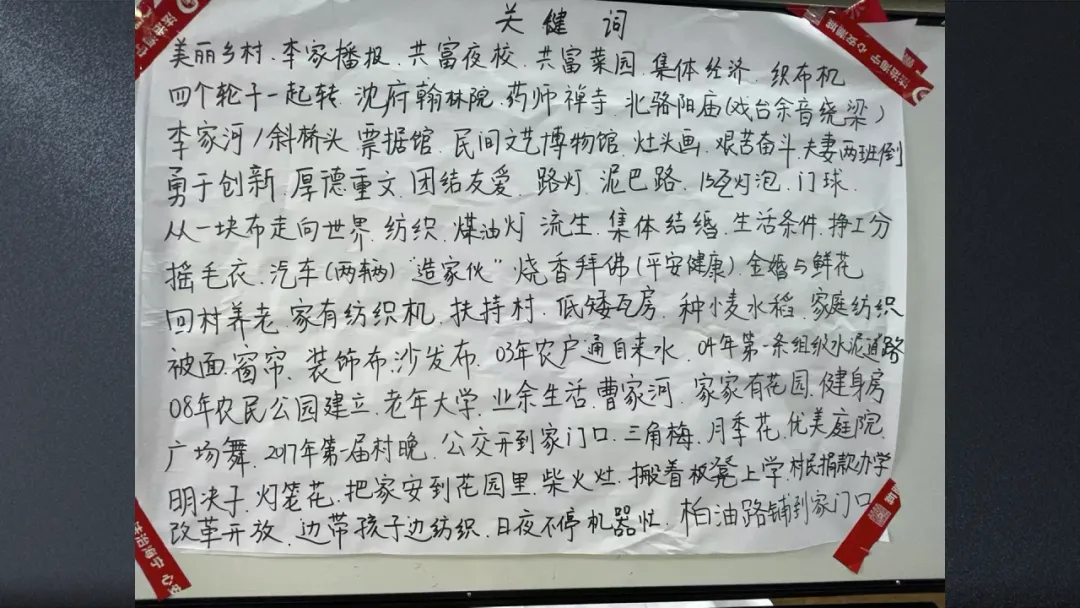 关健词
美丽乡村、李家播报、共富夜校、共富菜园、集体经济、织布机
四个轮子一起转、沈府翰林院、药师禅寺、北骆阳庙(戏台余音绕梁)
李家河/斜桥头、票据馆、民间文艺博物馆、灶头画、艰苦奋斗、夫妻两班倒
勇于创新、厚德重文、团结友爱、路灯、泥巴路、15瓦灯泡、门球、
从一块布走向世界、纺织、煤油灯、流生、集体结婚、生活条件、挣工分
摇毛衣、汽车(两辆)"造家伙"烧香拜佛(平安健康)、金婚与鲜花
回村养老、家有纺织机、扶持村、低矮瓦房、种小麦水稻、家庭纺织
被面、窗帘、装饰布、沙发布、03年农户通自来水、04年第一条组级水泥道路
08年农民公园建立、老年大学、业余生活、曹家河、家家有花园、健身房
广场舞、2017年第一届村晚、公交开到家门口、三角梅、月季花、优美庭院
明决子、灯笼花、把家安到花园里、柴火灶、搬着板凳上学、村民捐款办学
改革开放、边带孩子边纺织、日夜不停机器忙、柏油路铺到家门口
法治海宁 心安潮城
法治海宁 心